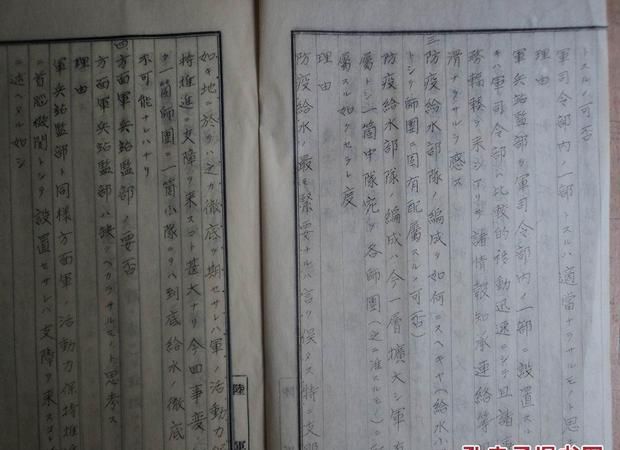 トスルノ可否
軍司令部内ノ一部トスルハ適當ナラサルモノト思
理由
軍兵站監部ヲ軍司令部内ノ一部ニ設置ス
キハ軍司令部ハ比較的移動迅速ニシテ且諸
輻輳ヲ来シ諸情報知承連絡等
滑ナラサルヲ感ス
三防疫給水部隊ノ編成ヲ如何ニスヘキヤ(給水
ク師團ニ固有配屬スルノ可否)
防疫給水部隊ノ編成ハ今一層擴大シ軍
屬トシ一箇中隊宛ヲ各師團(之ニ準スルモノ)ニ
屬スル如クセラレ度
理由
防疫給水ノ最モ緊要ナルハ言ヲ俟タス特ニ支
如キ地ニ於テ之カ徹底ヲ期セサレハ軍ノ活動力
持推進ニ支障ヲ来スコト甚大ナリ今回事変
ク一箇師團ニ一箇小隊ニテハ到底給水ノ徹底
不可能ナレハナリ
四方面軍兵站監部ノ要否
方面軍兵站監部ハ缺クヘカラサルモノト思考ス
理由
軍兵站監部ト同様方面軍ノ活動力保持推
ニ首脳機関トシテ設置セサレハ支障ヲ来ス
ニ述ヘタル如シ
陸軍